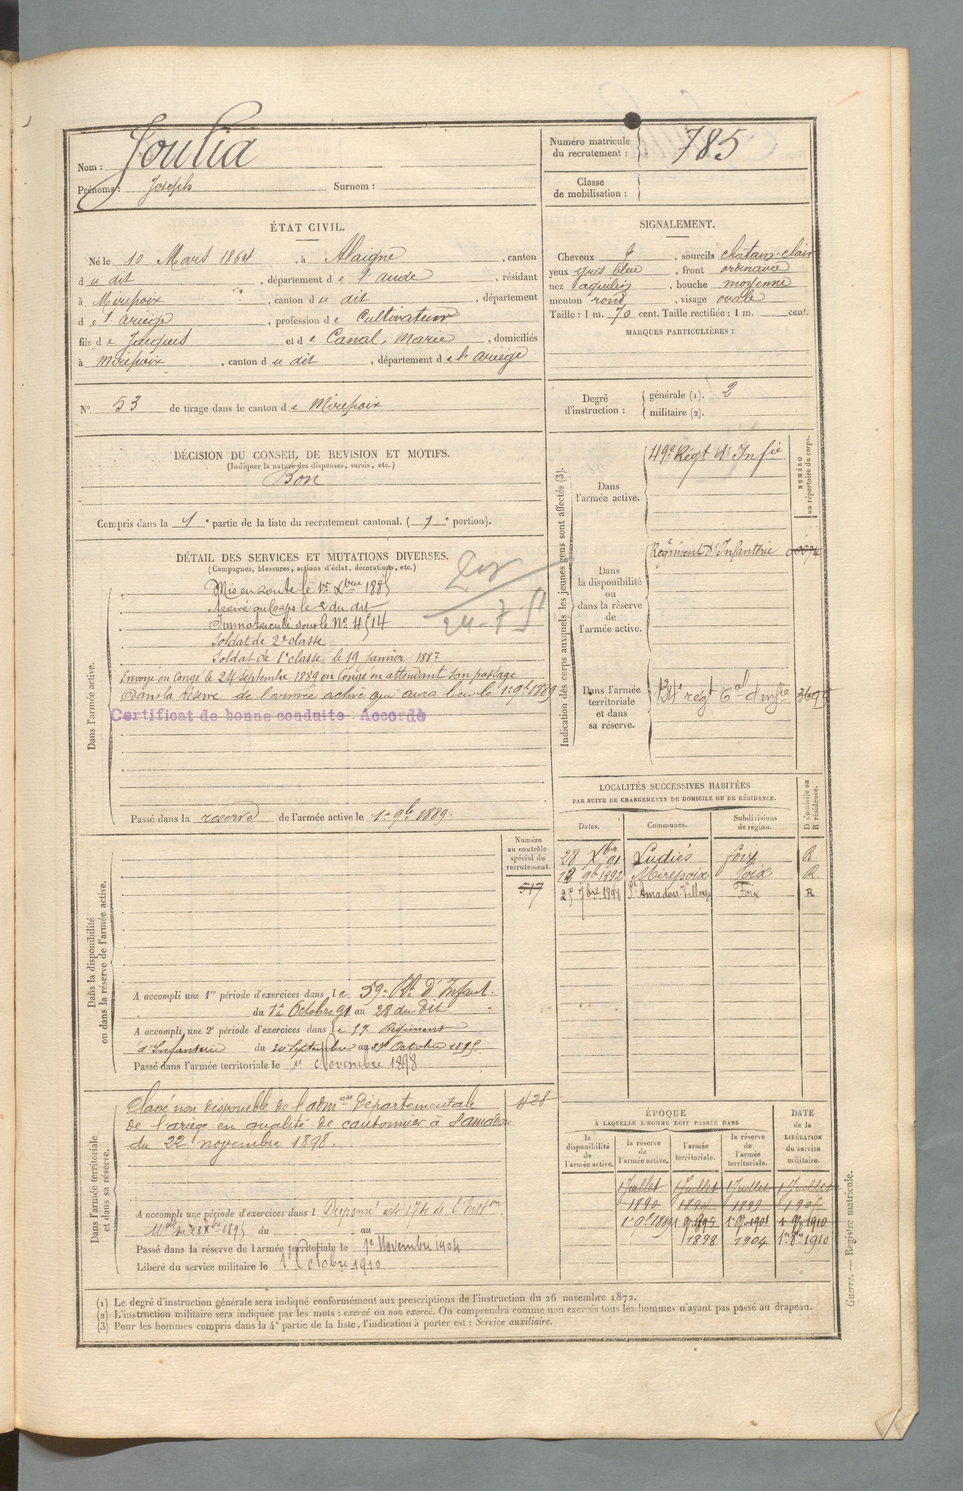 Nom : Joulia
Prénoms : Joseph Surnom :
Numéro matricule du recrutement : 785
Classe de mobilisation :
ÉTAT CIVIL.
Né le 10 Mars 1864, à Alaigne, canton
du dit, département de l'aude, résidant
à Mirepoix, canton du dit, département
de l'ariège, profession de Cultivateur
fils de Jacques et de Canal, Marie, domiciliés
à Mirepoix, canton du dit, département de l'ariège
N° 53 de tirage dans le canton de Mirepoix
SIGNALEMENT.
Cheveux, sourcils chatain-clair
yeux gris bleu, front ordinaire
nez aquilin, bouche moyenne
menton rond, visage ovale
Taille : 1 m. 70 cent. Taille rectifiée : 1 m. cent.
MARQUES PARTICULIÈRES :
Degré d'instruction : générale (1). 2
militaire (2).
DÉCISION DU CONSEIL DE REVISION ET MOTIFS.
(Indiquer la nature des dispenses, sursis, etc.)
Bon
Compris dans la 1e partie de la liste du recrutement cantonal. (1e portion).
DÉTAIL DES SERVICES ET MUTATIONS DIVERSES.
(Campagnes, blessures, actions d'éclat, décorations, etc.)
Dans l'armée active.
Mis en route le 1er Xbre 1885
Arrivé au Corps le 2 du dit
Immatriculé sous le N° 4514
Soldat de 2e classe
Soldat de 1e classe le 19 janvier 1887
Envoyé en Congé le 24 septembre 1889 en Congé en attendant son passage
Dans la réserve de l'armée active qui aura lieu le 1er 9bre 1889
Certificat de bonne conduite Accordé
Passé dans la réserve de l'armée active le 1er 9bre 1889.
Indication des corps auxquels les jeunes gens sont affectés (3).
NUMÉRO au répertoire du corps.
Dans l'armée active.
49e Régt d'Infie
Dans la disponibilité ou dans la réserve de l'armée active.
Régiment d'Infanterie
Dans l'armée territoriale et dans sa réserve.
LOCALITÉS SUCCESSIVES HABITÉES
PAR SUITE DE CHANGEMENTS DE DOMICILE OU DE RÉSIDENCE.
Dates. Communes. Subdivisions de région. D domicile ou R résidence.
28 Xbre 91 Ludiès foix R
12 9bre 1892 Mirepoix Foix R
25 7bre 1898 St Amadou Foix R
Dans la disponibilité ou dans la réserve de l'armée active.
Numéro au contrôle spécial du recrutement.
517
A accompli une 1re période d'exercices dans le 59e Rt d'Infant.
du 1er Octobre 91 au 28 du dit
A accompli une 2e période d'exercices dans le 59 Régiment
d'Infanterie du 30 Septembre au 27 Octobre 1895
Passé dans l'armée territoriale le 1er Novembre 1898
Dans l'armée territoriale et dans sa réserve.
428
Classé non disponible de l'admon Départementale
de l'ariège en qualité de cantonnier à St amadou
du 22 novembre 1898.
A accompli une période d'exercices dans l Dispensé art. 174 de l'Instion
du au
Passé dans la réserve de l'armée territoriale le 1er Novembre 1904
Libéré du service militaire le 1er Octobre 1910
ÉPOQUE
À LAQUELLE L'HOMME DOIT PASSER DANS
DATE de la LIBÉRATION du service militaire.
la disponibilité de l'armée active. la réserve de l'armée active. l'armée territoriale. la réserve de l'armée territoriale.
1 Juillet 1 Juillet 1 Juillet 1 Juillet
1890
1898 1904 1er 8bre 1910
(1) Le degré d'instruction générale sera indiqué conformément aux prescriptions de l'instruction du 26 novembre 1872.
(2) L'instruction militaire sera indiquée par les mots : exercé ou non exercé. On comprendra comme non exercés tous les hommes n'ayant pas passé au drapeau.
(3) Pour les hommes compris dans la 4e partie de la liste, l'indication à porter est : Service auxiliaire.
Guerre. — Registre matricule.